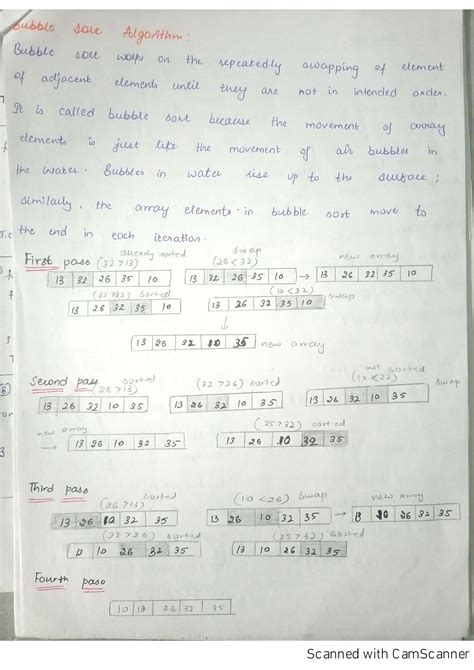 Bubble sort Algorithm:
Bubble sort works on the repeatedly swapping of element
of adjacent elements until they are not in intended order.
It is called bubble sort because the movement of array
elements is just like the movement of air bubbles in
the water. Bubbles in water rise up to the surface;
similarly, the array elements in bubble sort move to
the end in each iteration.
First pass (32 > 13) already sorted (26 < 32) swap new array
13 32 26 35 10 13 32 26 35 10 → 13 26 32 35 10
(35 > 32) sorted (10 < 32) swap
13 26 32 35 10 13 26 32 35 10
↓
13 26 32 10 35 new array
Second pass (26 > 13) sorted (32 > 26) sorted (10 < 32) not sorted swap
13 26 32 10 35 13 26 32 10 35 13 26 32 10 35
new array (35 > 32) sorted
→ 13 26 10 32 35 13 26 10 32 35
Third pass
(26 > 13) sorted (10 < 26) swap new array
13 26 10 32 35 13 26 10 32 35 → 13 10 26 32 35
(32 > 26) sorted (35 > 32) sorted
13 10 26 32 35 13 10 26 32 35
Fourth pass
10 13 26 32 35
Scanned with CamScanner